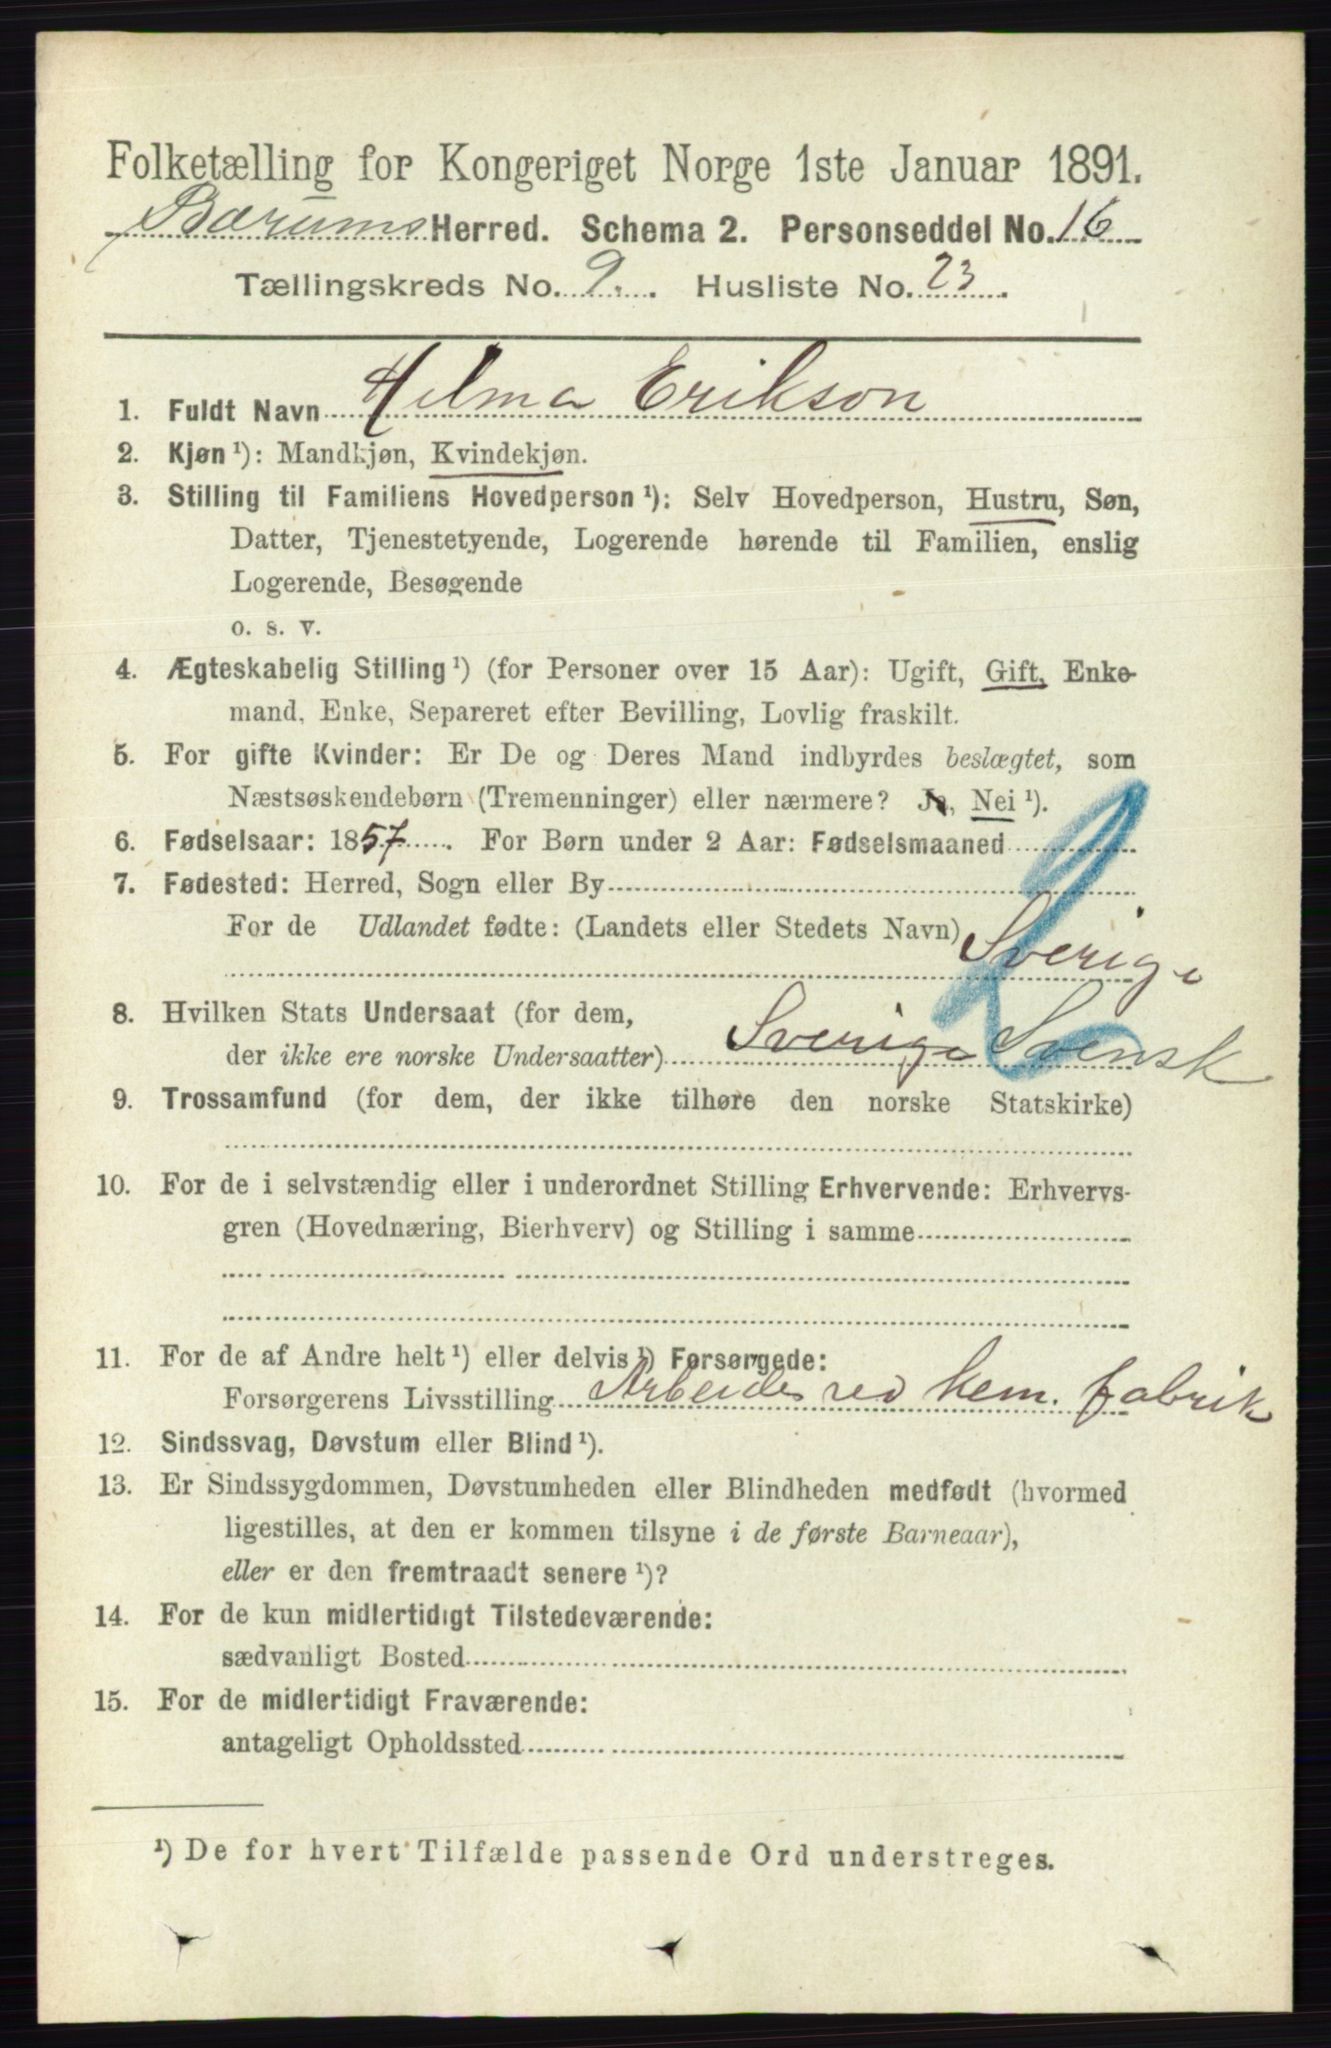 Folketælling for Kongeriget Norge 1ste Januar 1891.
Bærums Herred. Schema 2. Personseddel No. 16
Tællingskreds No. 9. Husliste No. 23
1. Fuldt Navn Hilma Erikson
2. Kjøn ¹): Mandkjøn, Kvindekjøn.
3. Stilling til Familiens Hovedperson ¹): Selv Hovedperson, Hustru, Søn,
Datter, Tjenestetyende, Logerende hørende til Familien, enslig
Logerende, Besøgende
o. s. v.
4. Ægteskabelig Stilling ¹) (for Personer over 15 Aar): Ugift, Gift, Enke-
mand, Enke, Separeret efter Bevilling, Lovlig fraskilt.
5. For gifte Kvinder: Er De og Deres Mand indbyrdes beslægtet, som
Næstsøskendebørn (Tremenninger) eller nærmere? Ja, Nei ¹).
6. Fødselsaar: 1857. For Børn under 2 Aar: Fødselsmaaned
7. Fødested: Herred, Sogn eller By
For de Udlandet fødte: (Landets eller Stedets Navn) Sverige
8. Hvilken Stats Undersaat (for dem,
der ikke ere norske Undersaatter) Sverige Svensk
9. Trossamfund (for dem, der ikke tilhøre den norske Statskirke)
10. For de i selvstændig eller i underordnet Stilling Erhvervende: Erhvervs-
gren (Hovednæring, Bierhverv) og Stilling i samme
11. For de af Andre helt ¹) eller delvis ¹) Forsørgede:
Forsørgerens Livsstilling Arbeider ved kem. fabrik
12. Sindssvag, Døvstum eller Blind ¹).
13. Er Sindssygdommen, Døvstumheden eller Blindheden medfødt (hvormed
ligestilles, at den er kommen tilsyne i de første Barneaar),
eller er den fremtraadt senere ¹)?
14. For de kun midlertidigt Tilstedeværende:
sædvanligt Bosted
15. For de midlertidigt Fraværende:
antageligt Opholdssted
¹) De for hvert Tilfælde passende Ord understreges.